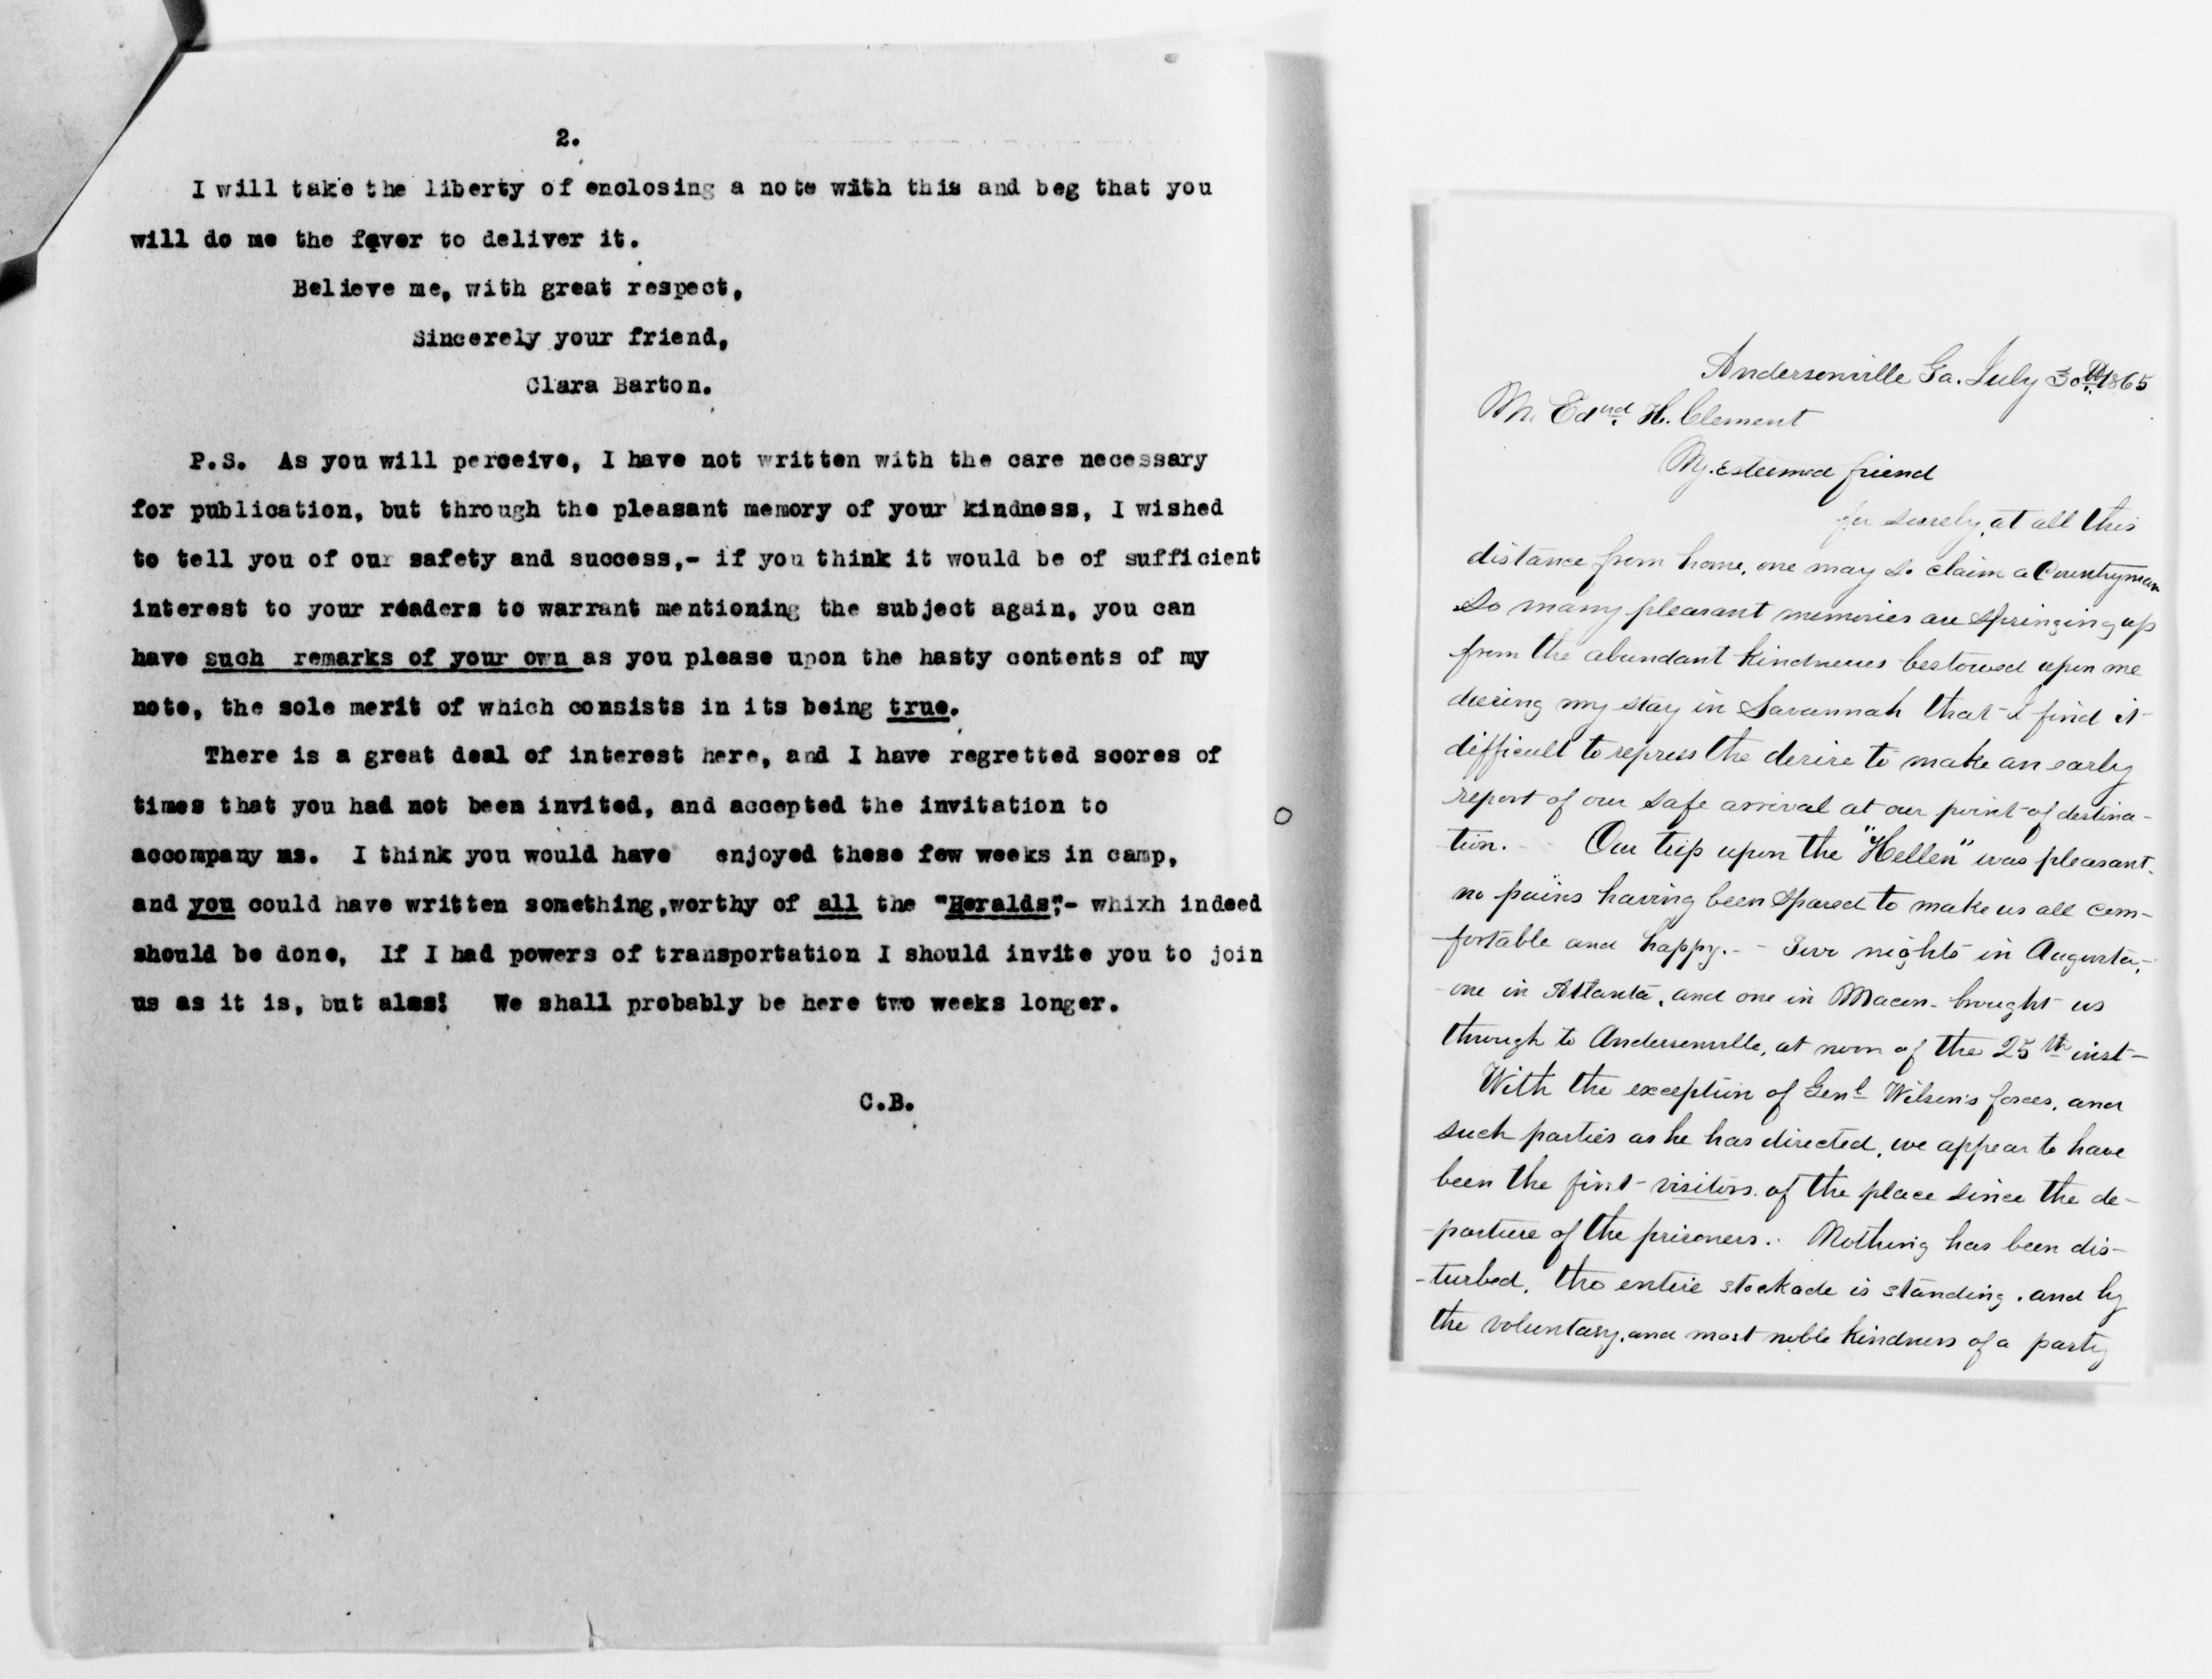 2.
I will take the liberty of enclosing a note with this and beg that you
will do me the favor to deliver it.
Believe me, with great respect,
Sincerely your friend,
Clara Barton.
P.S. As you will perceive, I have not written with the care necessary
for publication, but through the pleasant memory of your kindness, I wished
to tell you of our safety and success,- if you think it would be of sufficient
interest to your readers to warrant mentioning the subject again, you can
have such remarks of your own as you please upon the hasty contents of my
note, the sole merit of which consists in its being true.
There is a great deal of interest here, and I have regretted scores of
times that you had not been invited, and accepted the invitation to
accompany us. I think you would have enjoyed these few weeks in camp,
and you could have written something,worthy of all the "Heralds",- whixh indeed
should be done, If I had powers of transportation I should invite you to join
us as it is, but alas! We shall probably be here two weeks longer.
C.B.
Andersonville Ga. July 30th 1865
Mr. Edwd H. Clement
My esteemed friend
for surely, at all this
distance from home, one may so claim a Countryman
So many pleasant memories are springing up
from the abundant kindnesses bestowed upon me
during my stay in Savannah that I find it
difficult to repress the desire to make an early
report of our safe arrival at our point of destina-
tion. - Our trip upon the "Hellen" was pleasant.
no pains having been spared to make us all com-
-fortable and happy. - - Two nights in Augusta,
one in Atlanta, and one in Macon - brought us
through to Andersonville, at noon of the 25th inst -
With the exception of Genl Wilson's forces, and
such parties as he has directed, we appear to have
been the first visitors of the place since the de-
-parture of the prisoners. Nothing has been dis-
-turbed, the entire stockade is standing, and by
the voluntary, and most noble kindness of a party